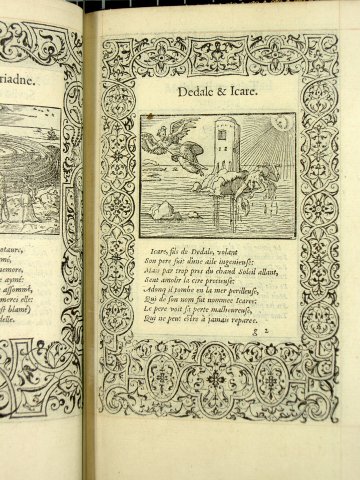 riadne.
ntaure,
mé,
nemore,
e aymé
assommé,
merci elle:
st blamé)
delle.
Dedale & Icare.
Icare, fils de Dedale, volant
Son pere suit d'une aile ingenieuse:
Mais par trop pres du chaud Soleil allant,
Sent amolir la cire precieuse:
Adonq il tombe en la mer perilleuse,
Qui de son nom fut nommee Icaree:
Le pere voit sa perte malheureuse,
Qui ne peut estre à jamais reparee.
g 2